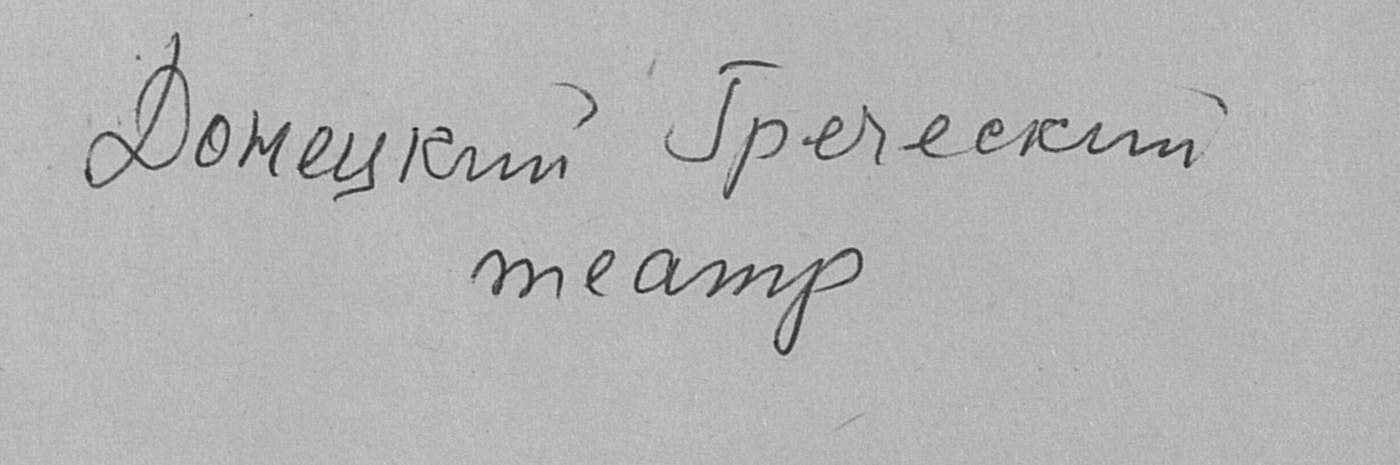 Донецкий Греческий
театр